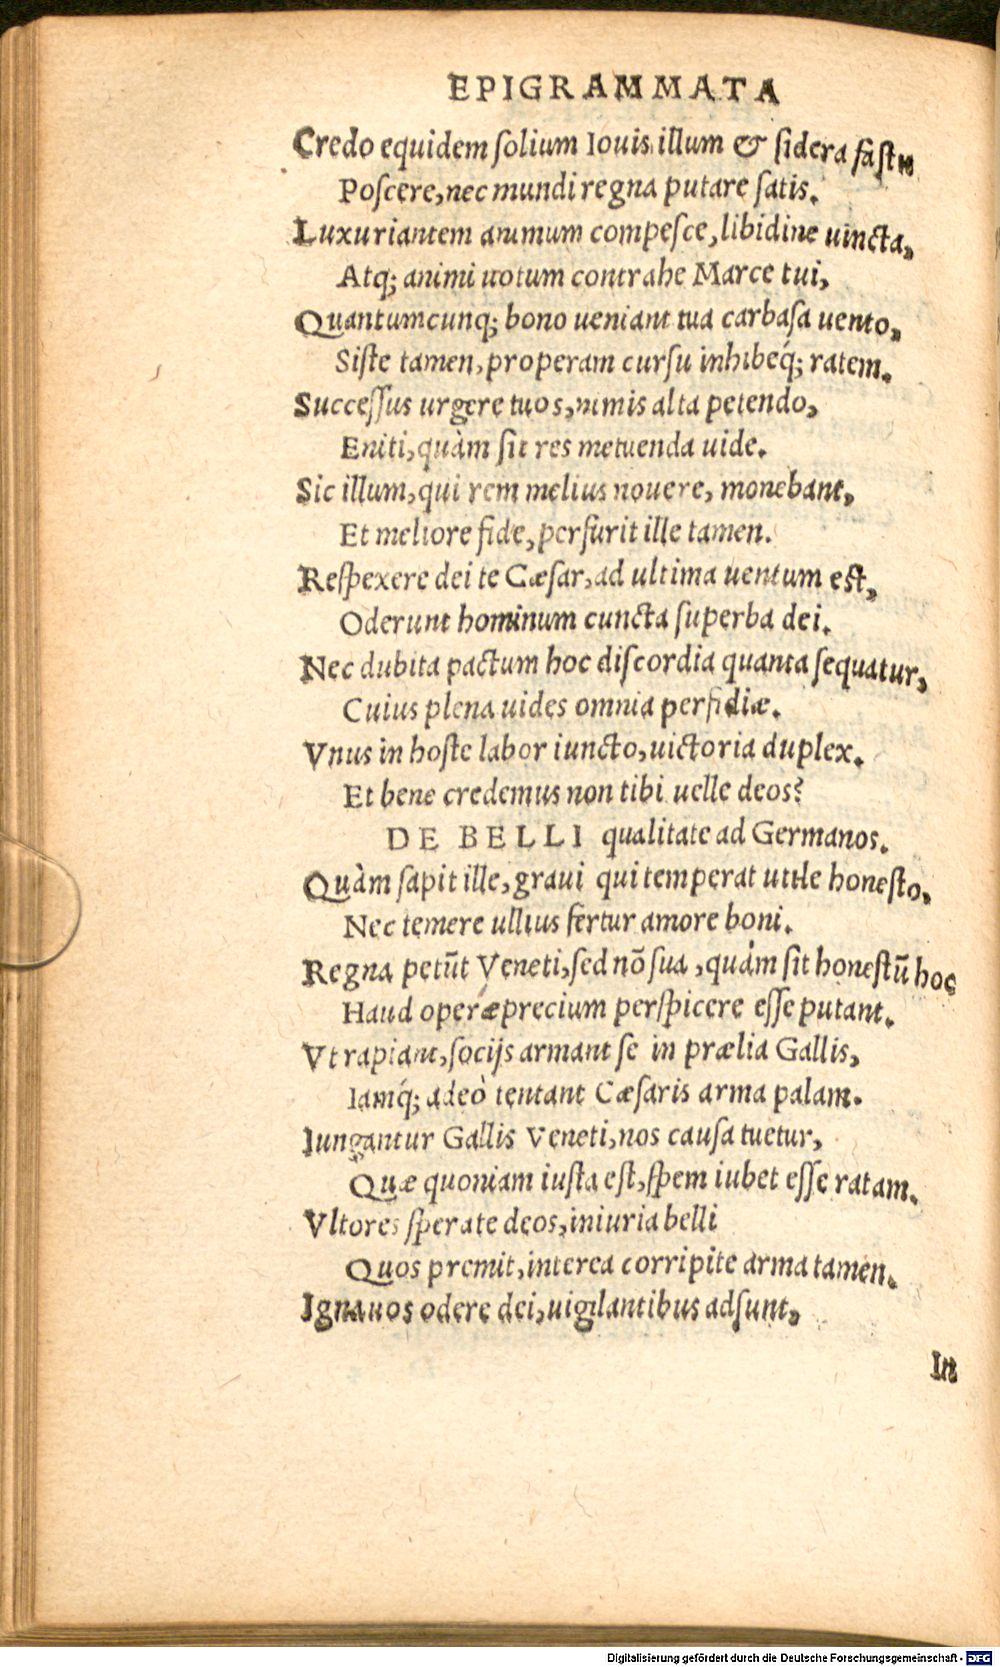 EPIGRAMMATA
Credo equidem ſolium Iouis illum & ſidera faſtu
Poſcere, nec mundi regna putare ſatis.
Luxuriantem animum compeſce, libidine uincta,
Atq; animi uotum contrahe Marce tui,
Quantumcunq; bono ueniant tua carbaſa uento,
Siſte tamen, properam curſu inhibeq́; ratem.
Succeſſus urgere tuos, nimis alta petendo,
Eniti, quàm ſit res metuenda uide.
Sic illum, qui rem melius nouere, monebant,
Et meliore fide, perfurit ille tamen.
Reſpexere dei te Cæſar, ad ultima uentum eſt,
Oderunt hominum cuncta ſuperba dei.
Nec dubita pactum hoc diſcordia quanta ſequatur,
Cuius plena uides omnia perfidiæ.
Vnus in hoſte labor iuncto, uictoria duplex.
Et bene credemus non tibi uelle deos?
DE BELLI qualitate ad Germanos.
Quàm ſapit ille, graui qui temperat utile honeſto,
Nec temere ullius fertur amore boni.
Regna petūt Veneti, ſed nō ſua, quàm ſit honeſtū hoc
Haud operæprecium perſpicere eſſe putant.
Vt rapiant, ſocijs armant ſe in prælia Gallis,
Iamq́; adeò tentant Cæſaris arma palam.
Iungantur Gallis Veneti, nos cauſa tuetur,
Quæ quoniam iuſta eſt, ſpem iubet eſſe ratam.
Vltores ſperate deos, iniuria belli
Quos premit, interea corripite arma tamen.
Ignauos odere dei, uigilantibus adſunt,
In
Digitalisierung gefördert durch die Deutsche Forschungsgemeinschaft - DFG